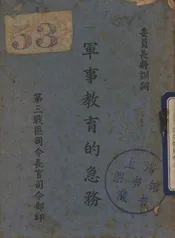 委員長蔣訓詞
軍事教育的急務
第三戰區司令長官司令部印
53